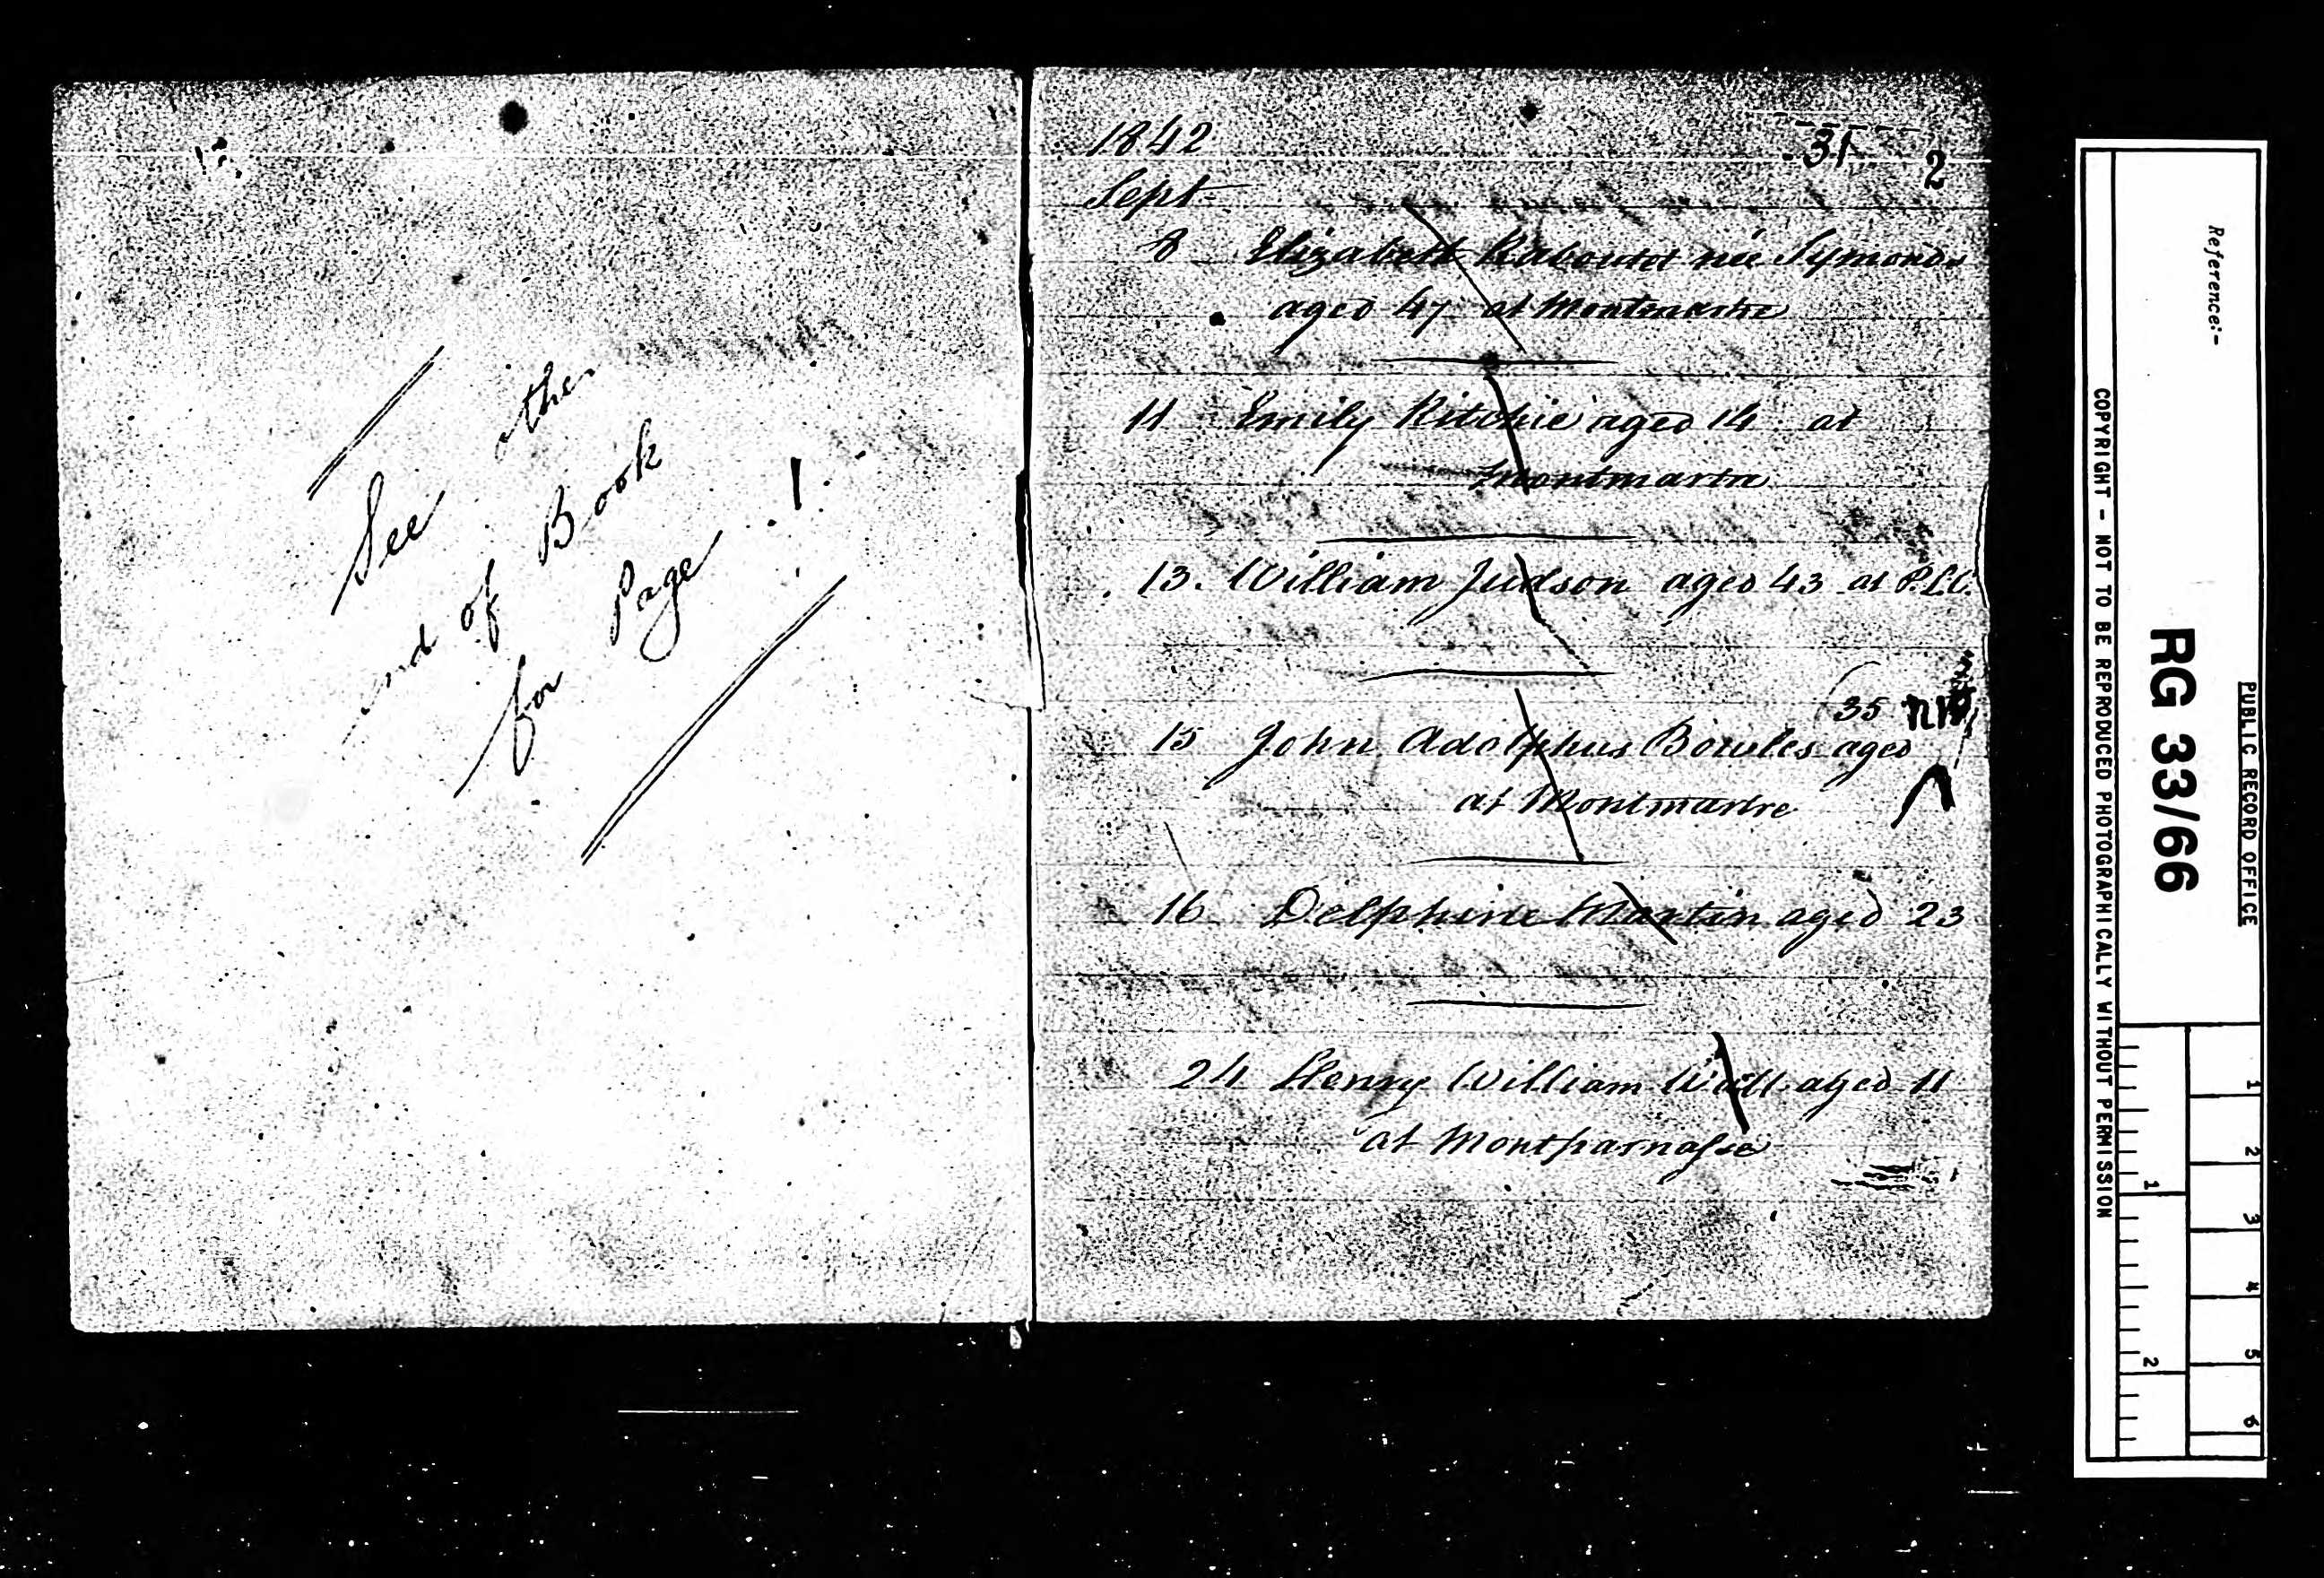 See other
end of Book
for Page 1.
1842 31 2
Sept
8 Elizabeth Raboutet née Symonds
aged 47 at Montmartre
11 Emily Ritchie aged 14 at
Montmartre
13. William Judson aged 43 at P.L.C.
35
15 John Adolphus Bowles aged
at Montmartre
16 Delphine Martin aged 23
24 Henry William Wall aged 11
at Montparnasse
Reference:-
PUBLIC RECORD OFFICE
RG 33/66
1 2 3 4 5 6
1 2
COPYRIGHT - NOT TO BE REPRODUCED PHOTOGRAPHICALLY WITHOUT PERMISSION